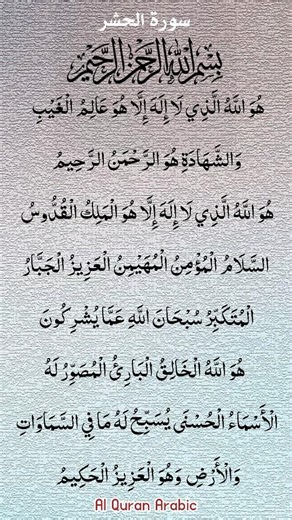 سورة الحشر
بِسْمِ اللَّهِ الرَّحْمَٰنِ الرَّحِيمِ
هُوَ اللَّهُ الَّذِي لَا إِلَهَ إِلَّا هُوَ عَالِمُ الْغَيْبِ
وَالشَّهَادَةِ هُوَ الرَّحْمَنُ الرَّحِيمُ
هُوَ اللَّهُ الَّذِي لَا إِلَهَ إِلَّا هُوَ الْمَلِكُ الْقُدُّوسُ
السَّلَامُ الْمُؤْمِنُ الْمُهَيْمِنُ الْعَزِيزُ الْجَبَّارُ
الْمُتَكَبِّرُ سُبْحَانَ اللَّهِ عَمَّا يُشْرِكُونَ
هُوَ اللَّهُ الْخَالِقُ الْبَارِئُ الْمُصَوِّرُ لَهُ
الْأَسْمَاءُ الْحُسْنَى يُسَبِّحُ لَهُ مَا فِي السَّمَاوَاتِ
وَالْأَرْضِ وَهُوَ الْعَزِيزُ الْحَكِيمُ
Al Quran Arabic